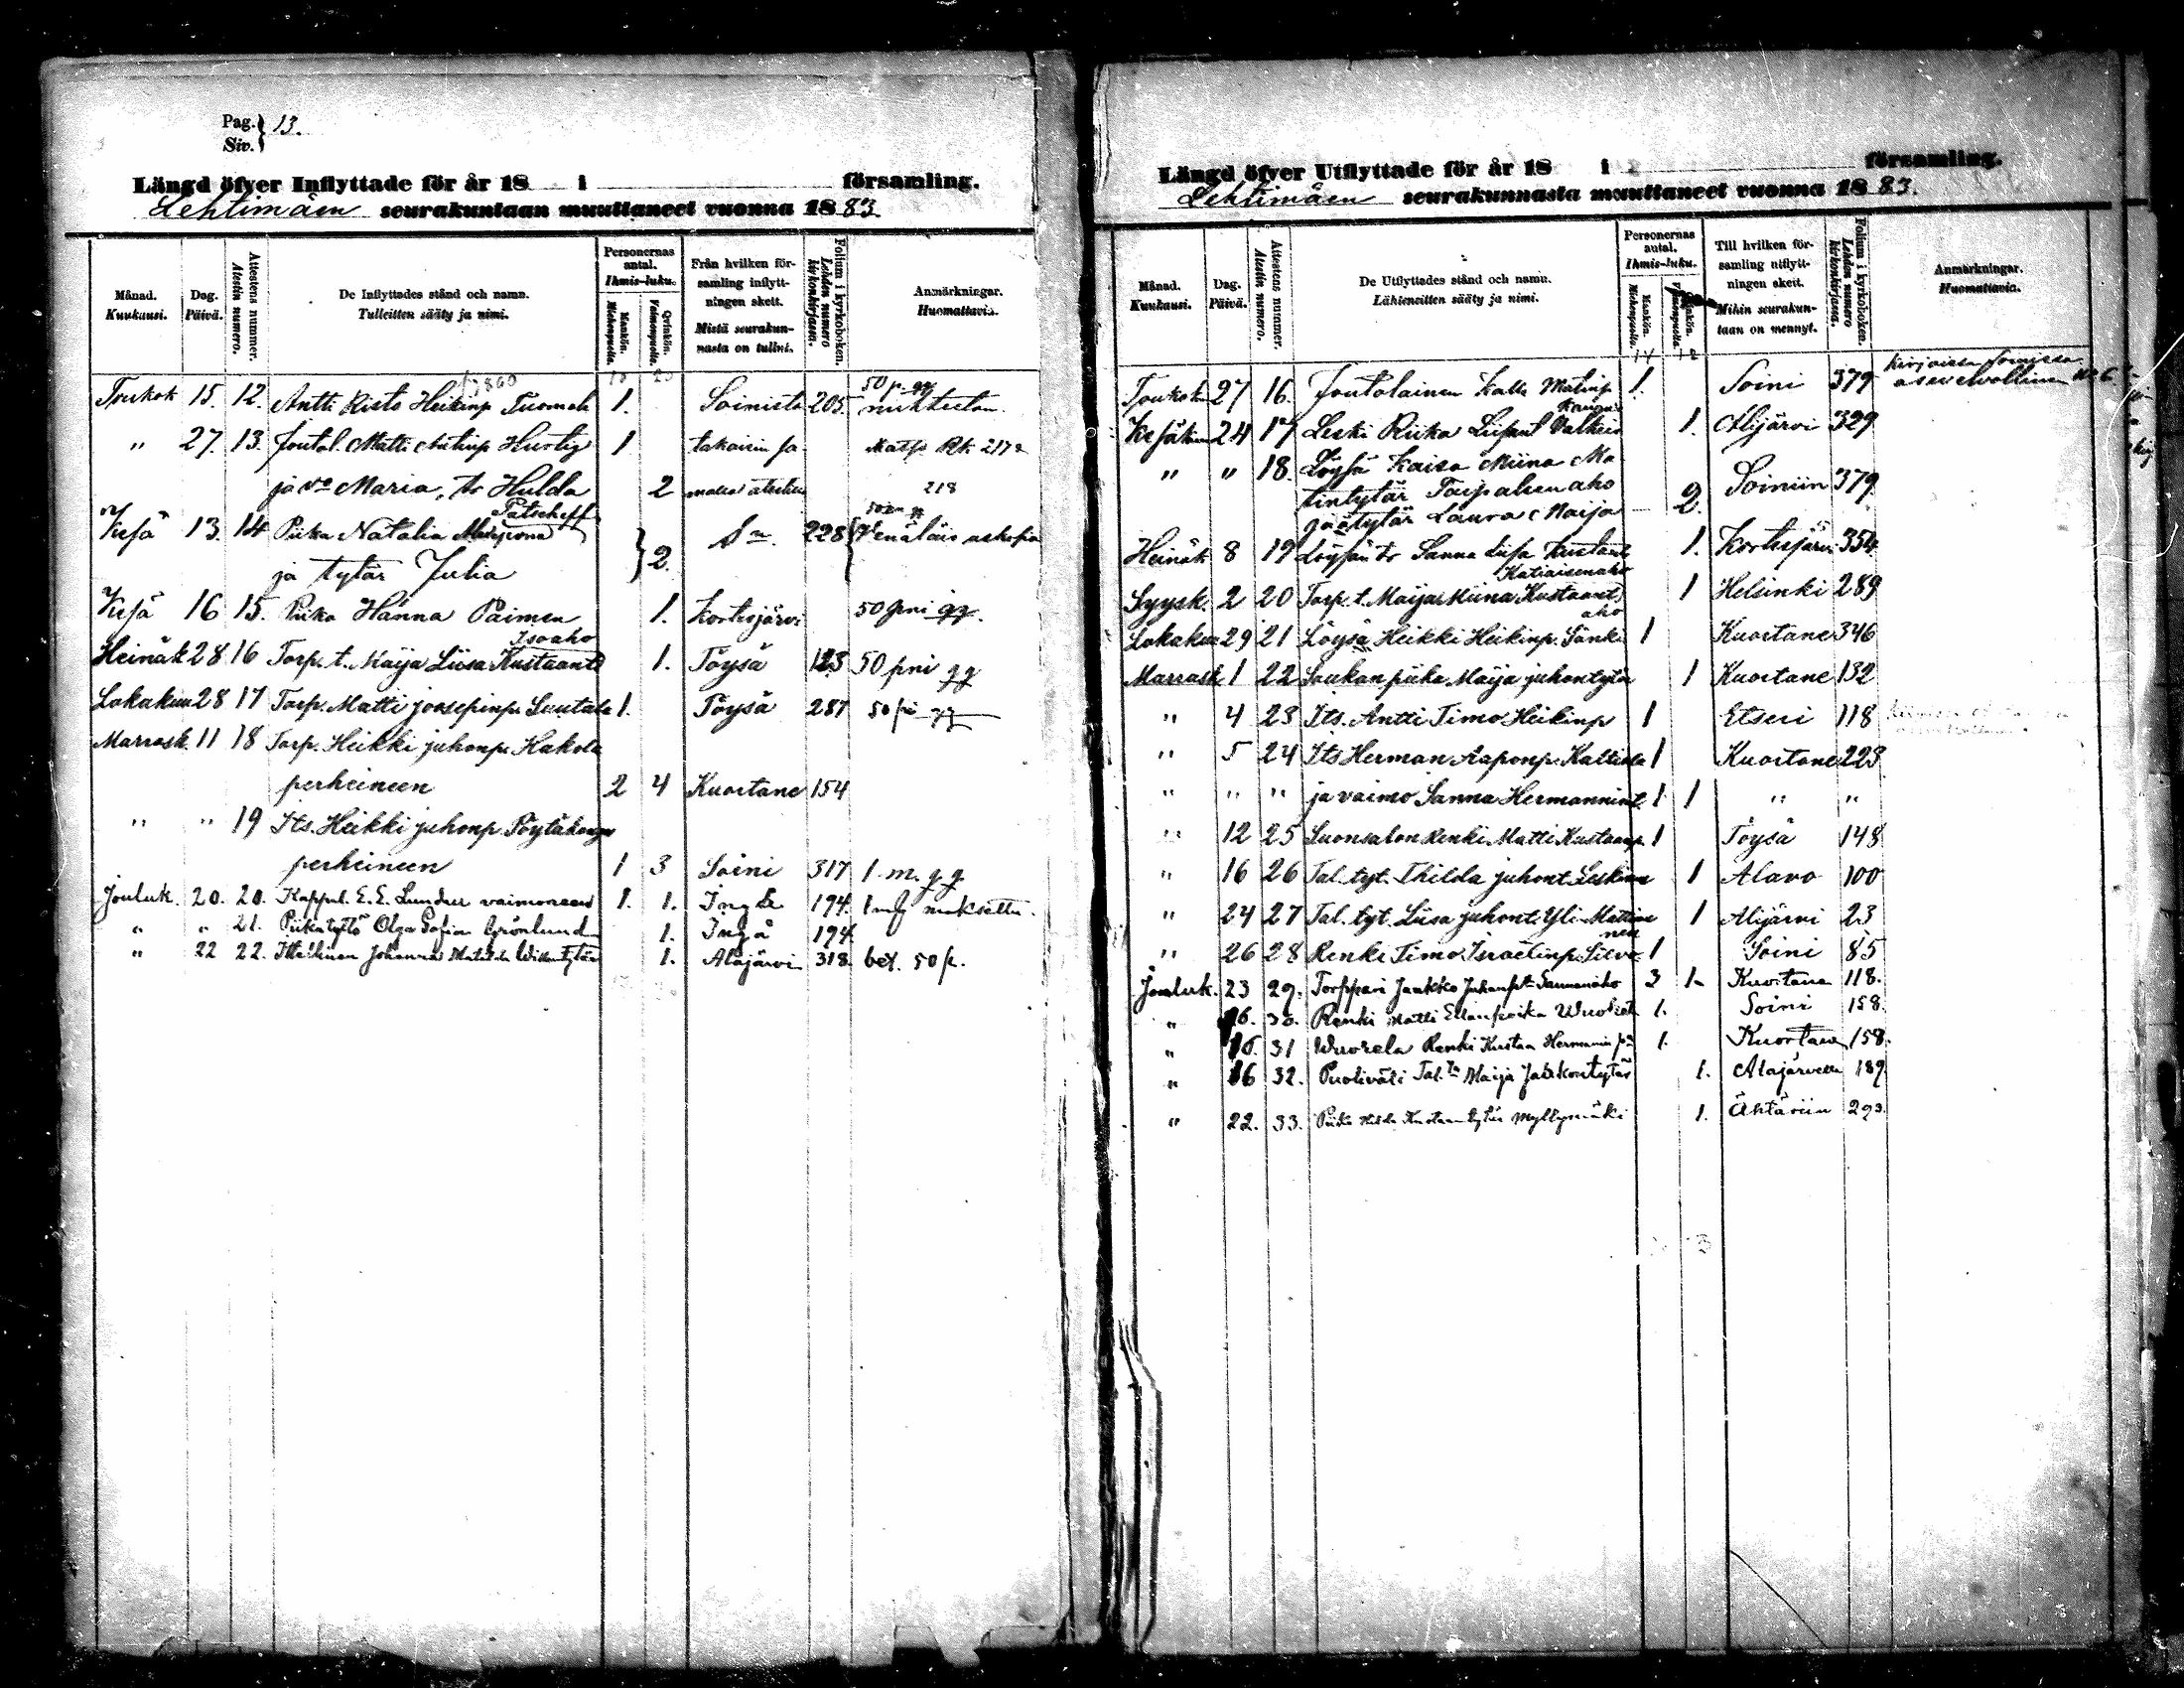 Pag. } 13.
Siv.
Längd öfver Inflyttade för år 18 i församling.
Lehtimäen seurakuntaan muuttaneet vuonna 1883
Månad. Kuukausi.
Dag. Päivä.
Attestens nummer. Atestin numero.
De Inflyttades stånd och namn. Tulleitten sääty ja nimi.
Personernas antal. Ihmis-luku.
Mankön. Miehenpuolia.
Qvinkön. Vaimonpuolia.
Från hvilken församling inflyttningen skett. Mistä seurakunnasta on tullut.
Folium i kyrkoboken. Lehden numero kirkonkirjassa.
Anmärkningar. Huomattavia.
Toukok 15. 12. Antti Risto Heikinp Tuomela 1. Soinista 205. 50 p.
" 27. 13. Joutol. Matti Matinp Hustig 1 takaisin
ja vo Maria, tr Hulda 2 218
Patscheff
Kesä 13. 14 Piika Natalia 228
ja tytär Julia 2.
Kesä 16 15. Piika Hanna Paimen 1. Kortesjärvi 50 pni
Isoaho
Heinäk 28 16 Torp. t. Maija Liisa Kustaant 1. Töysä 123 50 pni
Lokakuu 28 17 Torp. Matti joosepinp. Luutala 1. Töysä 287
Marrask. 11 18 Torp. Heikki juhonp. Hakola
perheineen 2 4 Kuortane 154
" " 19 Its. Heikki juhonp. Pöytäkangas
perheineen 1 3 Soini 317 1. m.
Jouluk. 20. 20. Kappal. E. E. Lundier vaimoneen 1. 1. Ingå 194. 1 mk maksettu.
" " 21. Piikatyttö Olga Sofia Grönlund 1. Ingå 194
" 22 22. Itsellinen Johanna Matilda 1. Alajärvi 318. bet. 50 p.
Längd öfver Utflyttade för år 18 i församling.
Lehtimäen seurakunnasta muuttaneet vuonna 1883.
Månad. Kuukausi.
Dag. Päivä.
Attestens nummer. Atestin numero.
De Utflyttades stånd och namn. Lähteneitten sääty ja nimi.
Personernas antal. Ihmis-luku.
Mankön. Miehenpuolia.
Qvinkön. Vaimonpuolia.
Till hvilken församling utflyttningen skett. Mihin seurakuntaan on mennyt.
Folium i kyrkoboken. Lehden numero kirkonkirjassa.
Anmärkningar. Huomattavia.
Toukokuu 27 16. Joutolainen Kalle Matinp 1. Soini 379
Kesäkuu 24 17 Leski Riika 1. Alijärvi 329
" " 18. Löysä Kaisa Miina Ma
tintytär Taipalienaho
ja tytär Laura Maija 2. Soiniin 379
Heinäk 8 19 Löysän tr Sanna Liisa Kustant 1. Kortesjärvi 354
Katiaisenaho
Syysk. 2 20 Torp. t. Maija Miina Kustaant 1 Helsinki 289
aho
Lokakuu 29 21 Löysä Heikki Heikinp. Sänki 1 Kuortane 346
Marrask 1 22 Saukan piika Maija juhontytär 1 Kuortane 132
" 4 23 Its. Antti Timo Heikinp 1 Etseri 118
" 5 24 Its Herman Aaponp. Kaltiala 1 Kuortane 223
" " " ja vaimo Sanna Hermannint 1 " "
" 12 25 Luonsalon renki Matti Kustaanp. 1 Töysä 148
" 16 26 Tal. tyt. Thilda juhont. Leskinen 1 Alavo 100
" 24 27 Tal. tyt. Liisa juhont. Yli-Mattinen 1 Alijärvi 23
" 26 28 Renki Timo Israelinp. 1 Soini 85
Jouluk. 23 29. Torppari Jaakko Juhanp. Saunanaho 3 1 Kuortane 118.
" 16. 30. Renki Matti 1. Soini 158.
" 16. 31 Wuorela Renki Kustaa Hermanin 1. Kuortane 158.
" 16 32. Puoliväli Tal. Maija Jaakontytär 1. Alajärvelle 189
" 22. 33. Piika Hilda Kustaantytär Myllymäki 1. Ähtäriin 293.